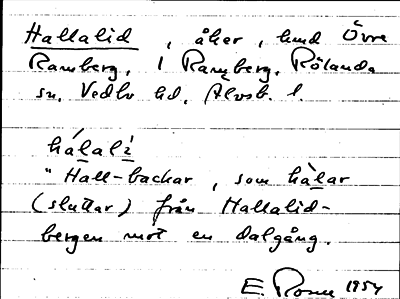 Hallalid, åker, hmd Övre
Ramberg, 1 Ramberg, Rölanda
sn, Vedbo hd, Älvsb. l.
hálalì
"Hall-backar, som hàlar
(sluttar) från Hallalid-
bergen mot en dalgång.
E. Rosun 1954